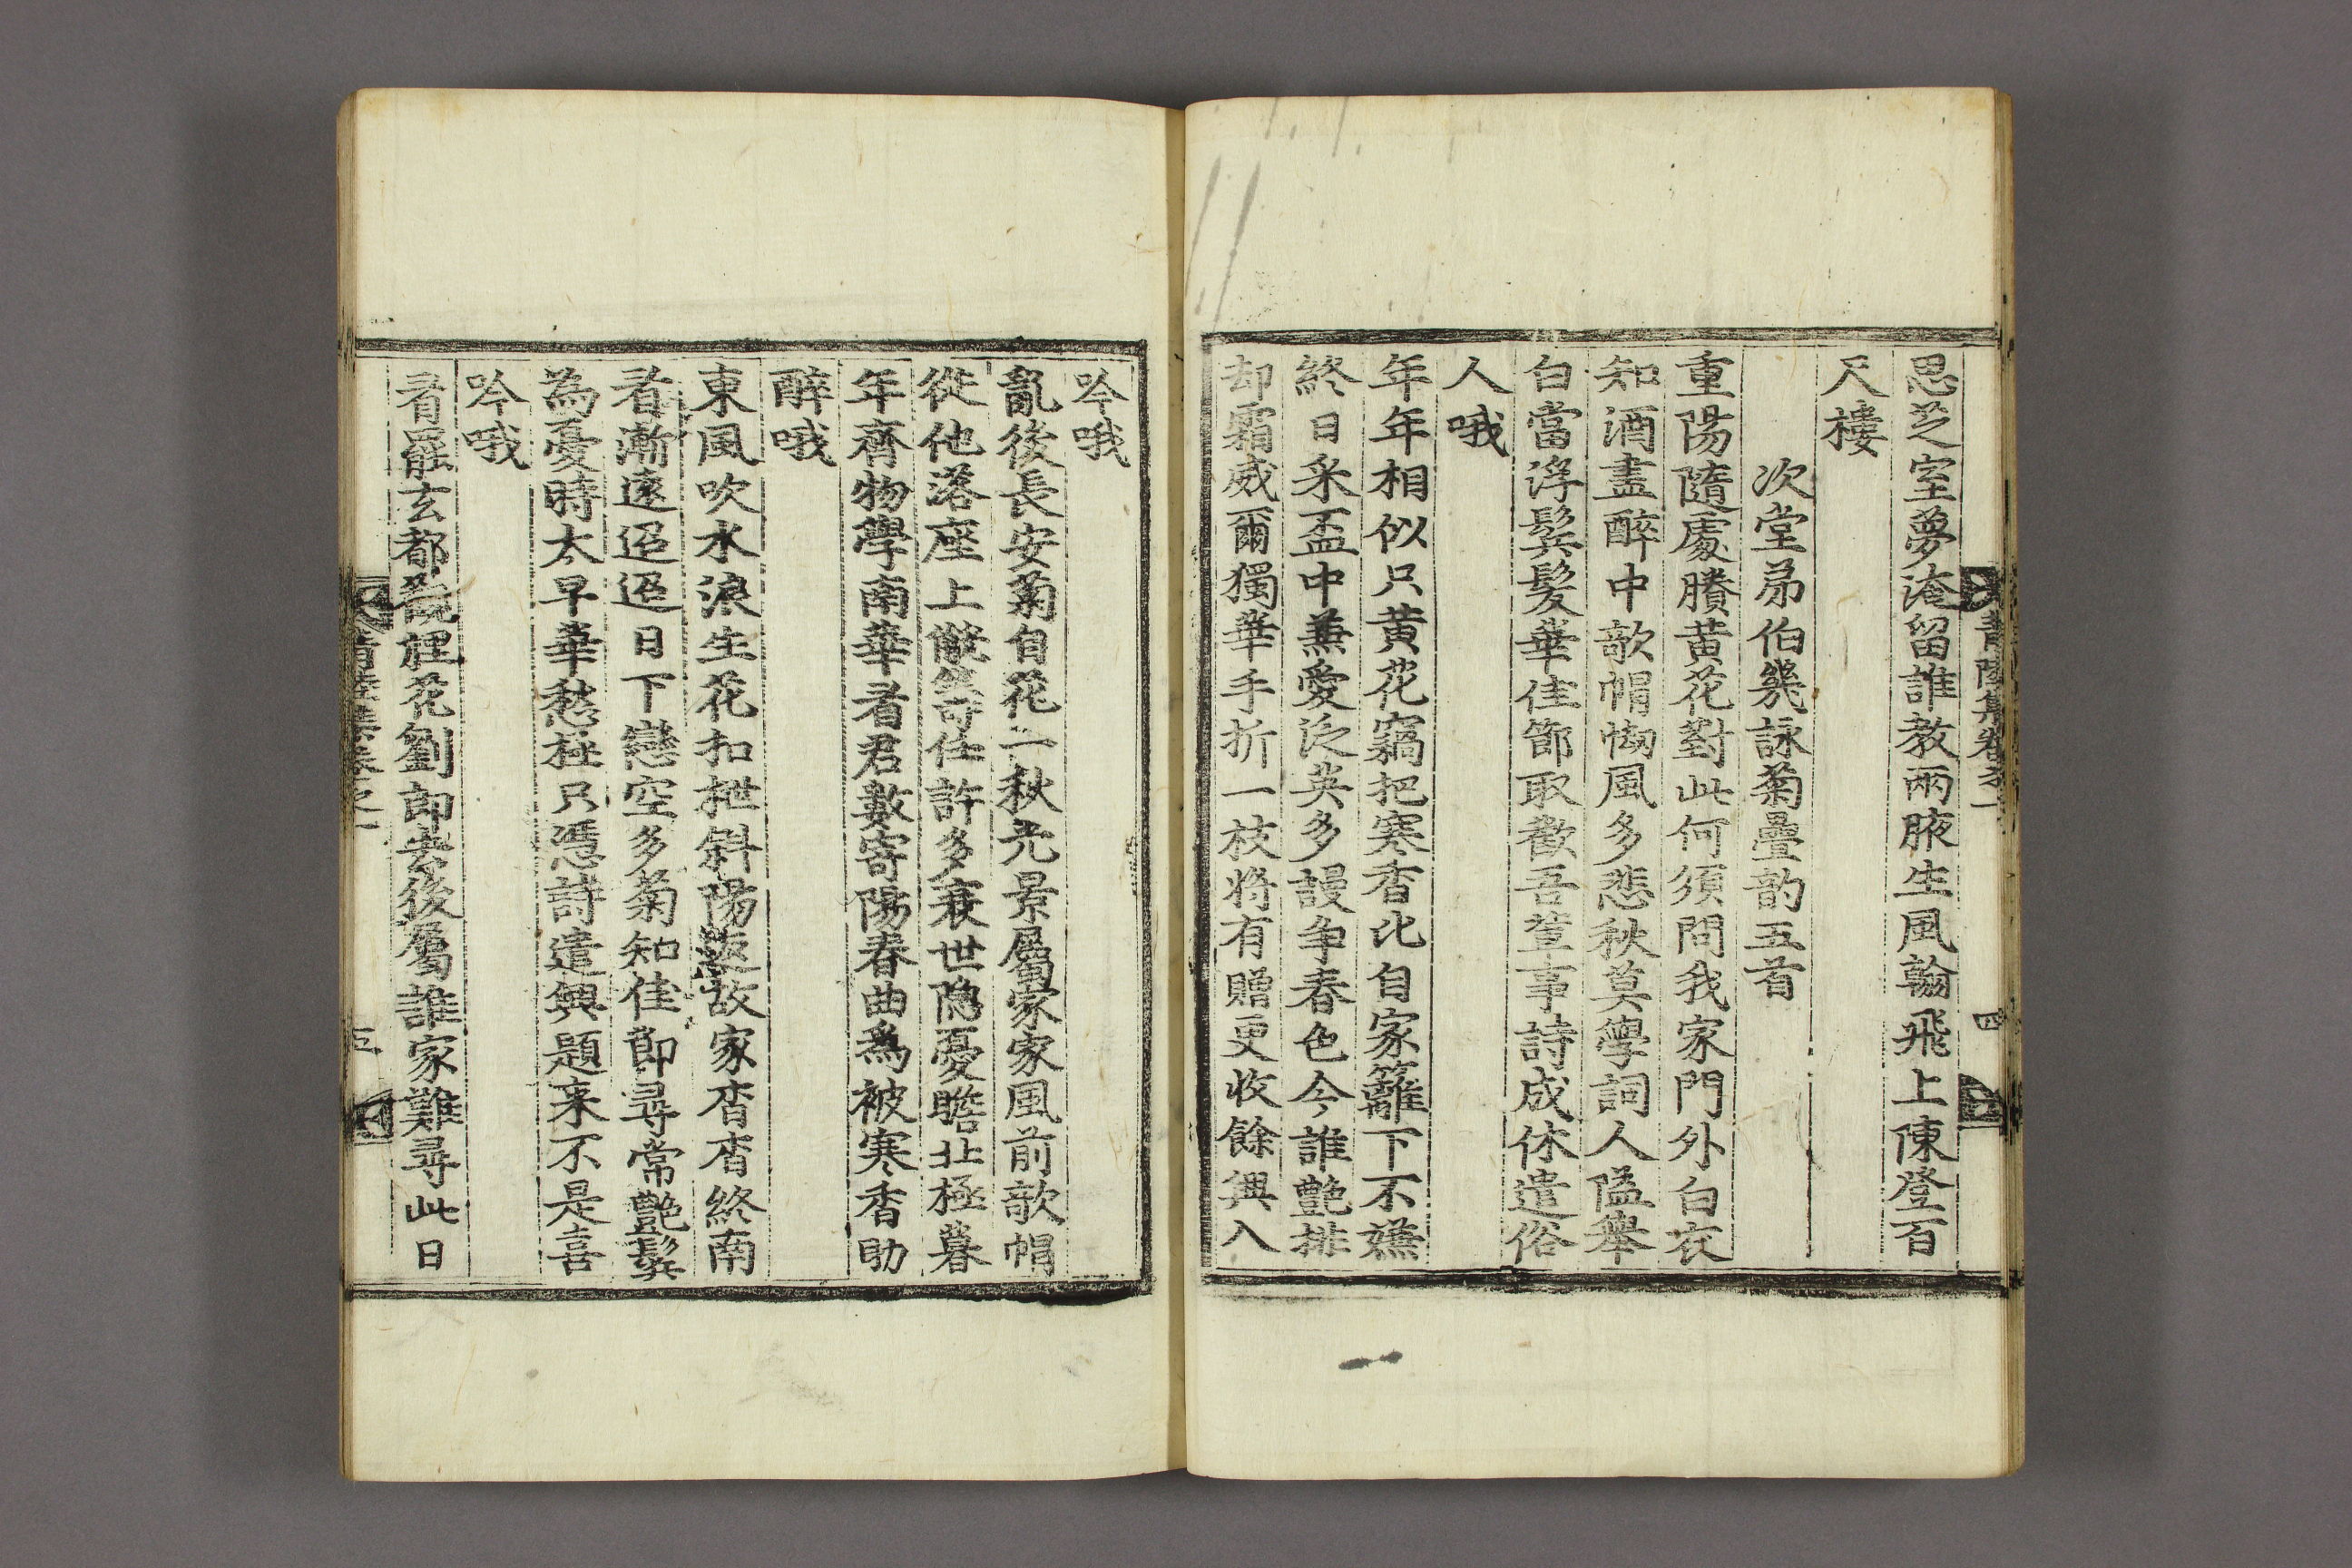 思芝室夢淹留誰教兩腋生風翰飛上陳登百
尺樓
次堂弟伯幾詠菊疊韵五首
重陽隨處賸黃花對此何須問我家門外白衣
知酒盡醉中欹帽㤼風多悲秋莫學詞人隘舉
白當浮鬂髮華佳節取歡吾輩事詩成休遣俗
人哦
年年相似只黃花竊把寒香比自家籬下不嫌
終日采盃中兼愛泛英多謾争春色今誰艶排
却霜威爾獨華手折一枝將有贈更收餘興入
吟哦
亂後長安菊自花一秋光景屬家家風前欹帽
從他落座上散等任許多衰世隐憂瞻北極暮
年齊物學南華看君數寄陽春曲為被寒香助
醉哦
東風吹水浪生花扣枻斜陽返故家杳杳終南
看漸遠遲遲日下戀空多菊知佳節尋常艶鬂
為憂時太早華愁極只憑詩遣興題来不是喜
吟哦
看罷玄都觀裡花劉郎去後屬誰家難尋此日
青陸集卷之一
四
五